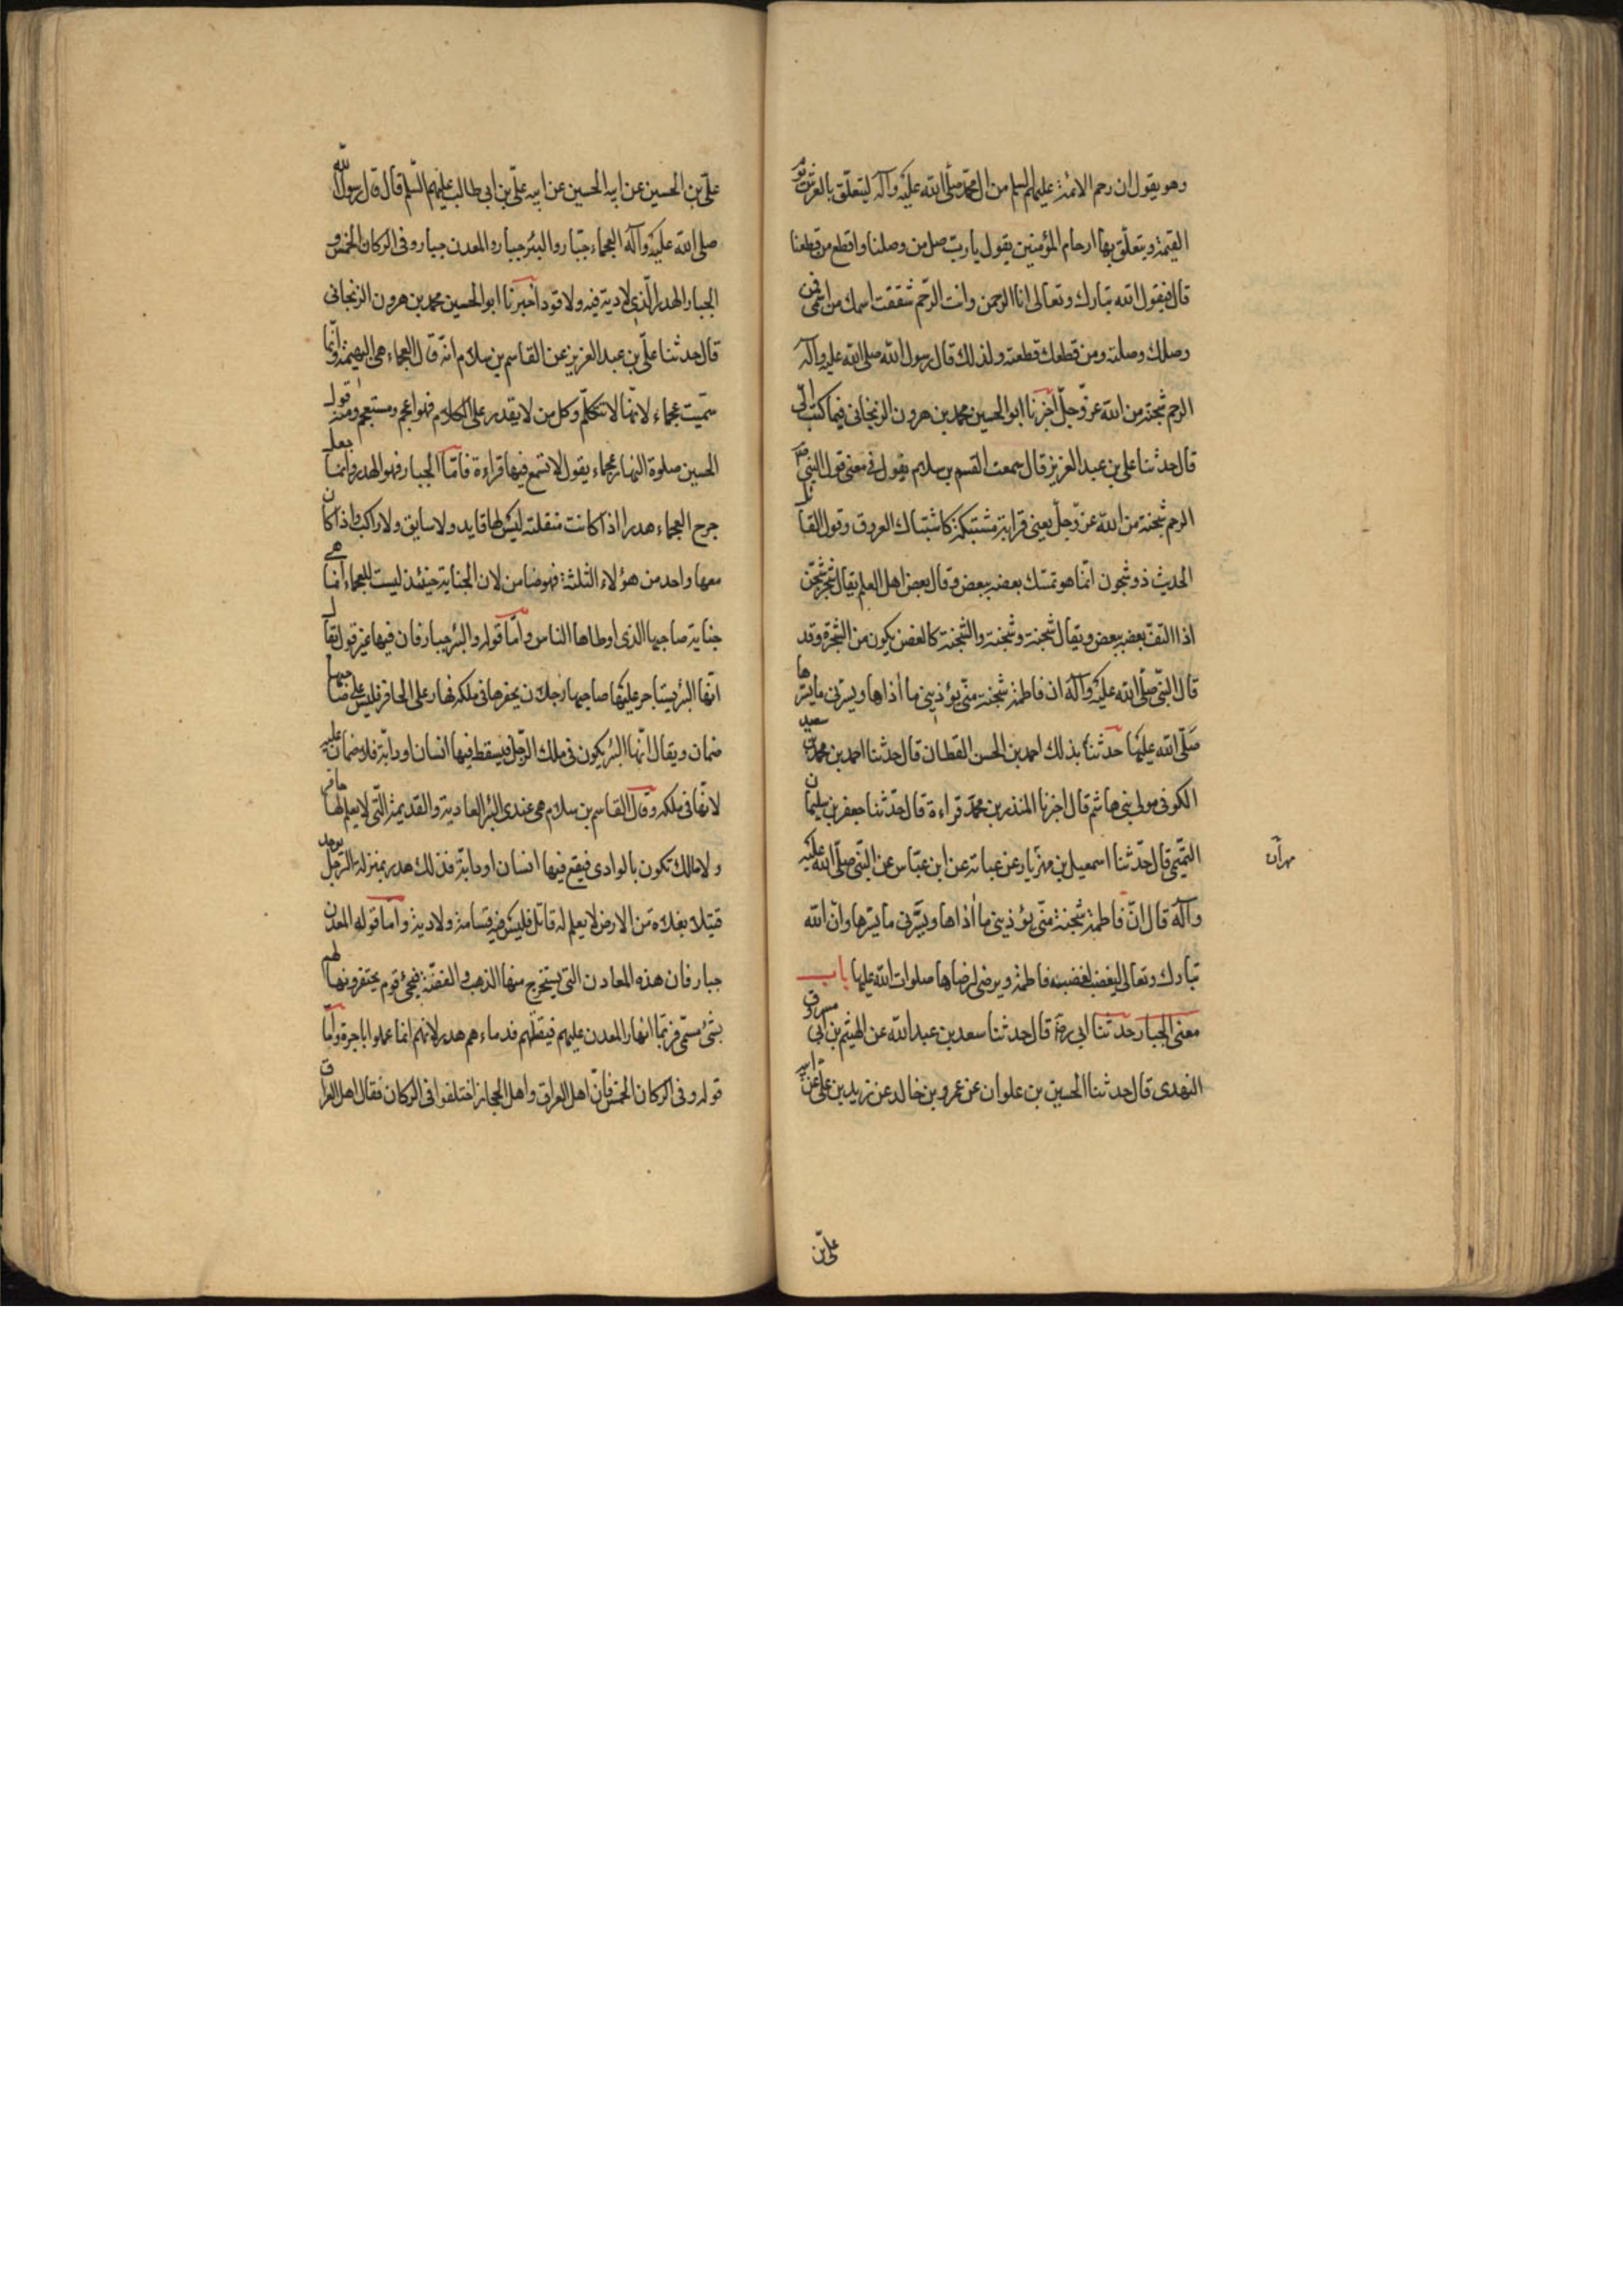 وهو يقول ان رحم الائمة عليهم السلم من ال محمد صلى الله عليه وآله ليتعلق بالعرش يوم
القيمة ويتعلق بها ارحام المؤمنين يقول يا رب صل من وصلنا واقطع من قطعنا
قال فيقول الله تبارك وتعالى انا الرحمن وانت الرحم شققت اسمك من اسمى فمن
وصلك وصلته ومن قطعك قطعته ولذلك قال رسول الله صلى الله عليه وآله
الرحم شجنة من الله عز وجل اخبرنا ابو الحسين محمد بن هرون الزنجانى فيما كتب الى
قال حدثنا على بن عبد العزيز قال سمعت القسم بن سلام يقول فى معنى قول النبى ص
الرحم شجنة من الله عز وجل يعنى قرابة مشتبكة كاشتباك العروق وقول القائل
الحديث ذو شجون انما هو تمسك بعضه ببعض وقال بعض اهل العلم يقال شجر متشجن
اذا التف بعضه ببعض ويقال شجنة وشجنة والشجنة كالغصن يكون من الشجرة وقد
قال النبى صلى الله عليه وآله ان فاطمة شجنة منى يؤذينى ما أذاها ويسرنى ما يسرها
صلى الله عليها حدثنا بذلك احمد بن الحسن القطان قال حدثنا احمد بن محمد بن سعيد
الكوفى مولى بنى هاشم قال اخبرنا المنذر بن محمد قراءة قال حدثنا جعفر بن سليمان
التميمى قال حدثنا اسمعيل بن مهران عن عباية عن ابن عباس عن النبى صلى الله عليه
مهران
وآله قال ان فاطمة شجنة منى يؤذينى ما أذاها ويسرنى ما يسرها وان الله
تبارك وتعالى ليغضب لغضب فاطمة ويرضى لرضاها صلوات الله عليها باب
معنى الجبار حدثنا ابى ره قال حدثنا سعد بن عبد الله عن الهيثم بن ابى مسروق
النهدى قال حدثنا الحسين بن علوان عن عمرو بن خالد عن زيد بن على عن ابيه
على بن
على بن الحسين عن ابيه الحسين عن ابيه على بن ابى طالب عليهم السلم قال قال رسول الله
صلى الله عليه وآله العجماء جبار والبئر جبار والمعدن جبار وفى الركان الخمس و
الجبار الهدر الذى لا دية فيه ولا قود اخبرنا ابو الحسين محمد بن هرون الزنجانى
قال حدثنا على بن عبد العزيز عن القاسم بن سلام انه قال العجماء هى البهيمة وانما
سميت عجماء لانها لا تتكلم وكل من لا يقدر على الكلام فهو اعجم ومستعجم ومنه قول
الحسين صلوة النهار عجماء يقول لا تسمع فيها قراءة فاما الجبار فهو الهدر وانما جعل
جرح العجماء هدرا اذا كانت منفلتة ليس لها قايد ولا سايق ولا راكب واذا كان
معها واحد من هؤلاء الثلثة فهو ضامن لان الجناية حينئذ ليست للعجماء انما هى
جناية صاحبها الذى اوطاها الناس واما قوله والبئر جبار فان فيها غير قول يقال
انها البئر يستاجر عليها صاحبها رجلا ن يحفرها فى ملكه فنهار على الحافر فليس على صاحبها
ضمان ويقال انها البئر يكون فى ملك الرجل فيسقط فيها انسان او دابة فلا ضمان عليه
لانها فى ملكه وقال القاسم بن سلام هى عندى البئر العادية والقديمة التى لا يعلم لها حافر
ولا مالك تكون بالوادى فيقع فيها انسان او دابة فذلك هدر بمنزلة الرجل يوجد
قتيلا بفلاة من الارض لا يعلم له قاتل فليس فيه قسامة ولا دية واما قوله المعدن
جبار فان هذه المعادن التى يستخرج منها الذهب والفضة فيجئ قوم يحتفرونها لهم
بشئ مسمى فربما انهار المعدن عليهم فيقتلهم فدماءهم هدر لانهم انما عملوا باجرة واما
قوله وفى الركان الخمس فان اهل العراق واهل الحجاز اختلفوا فى الركان فقال اهل العراق